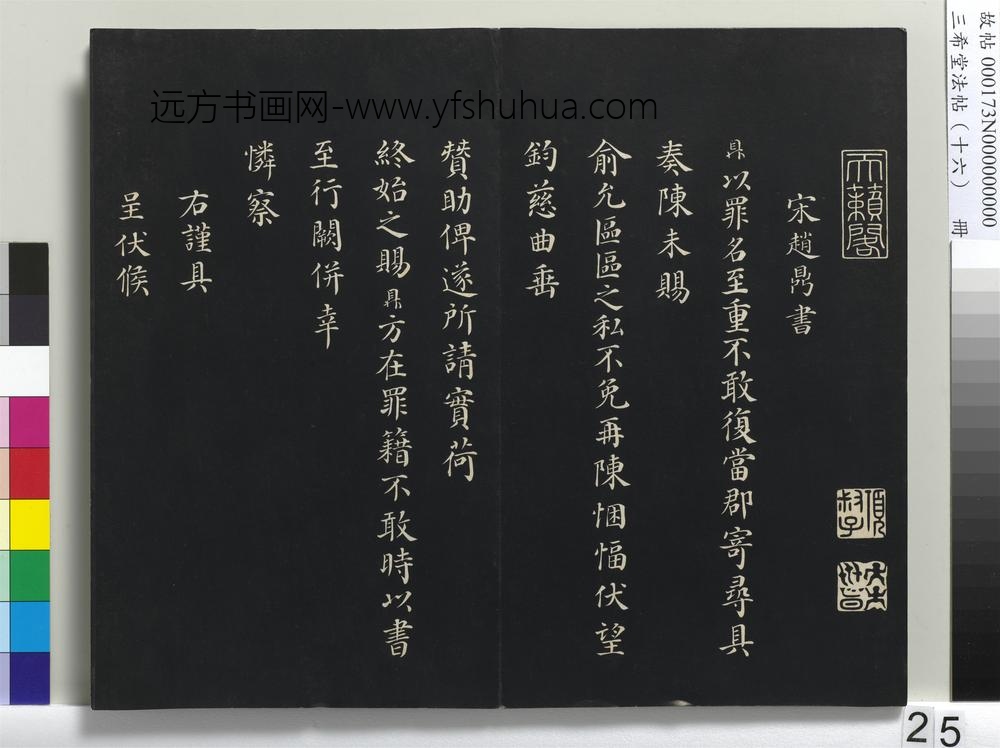 天籟閣
宋趙鼎書
鼎以罪名至重不敢復當郡寄尋具
奏陳未賜
俞允區區之私不免再陳悃愊伏望
鈞慈曲垂
贊助俾遂所請實荷
終始之賜鼎方在罪籍不敢時以書
至行闕併幸
憐察
右謹具
呈伏候
远方书画网-www.yfshuhua.com
故帖 000173N000000000
三希堂法帖（十六） 冊
25